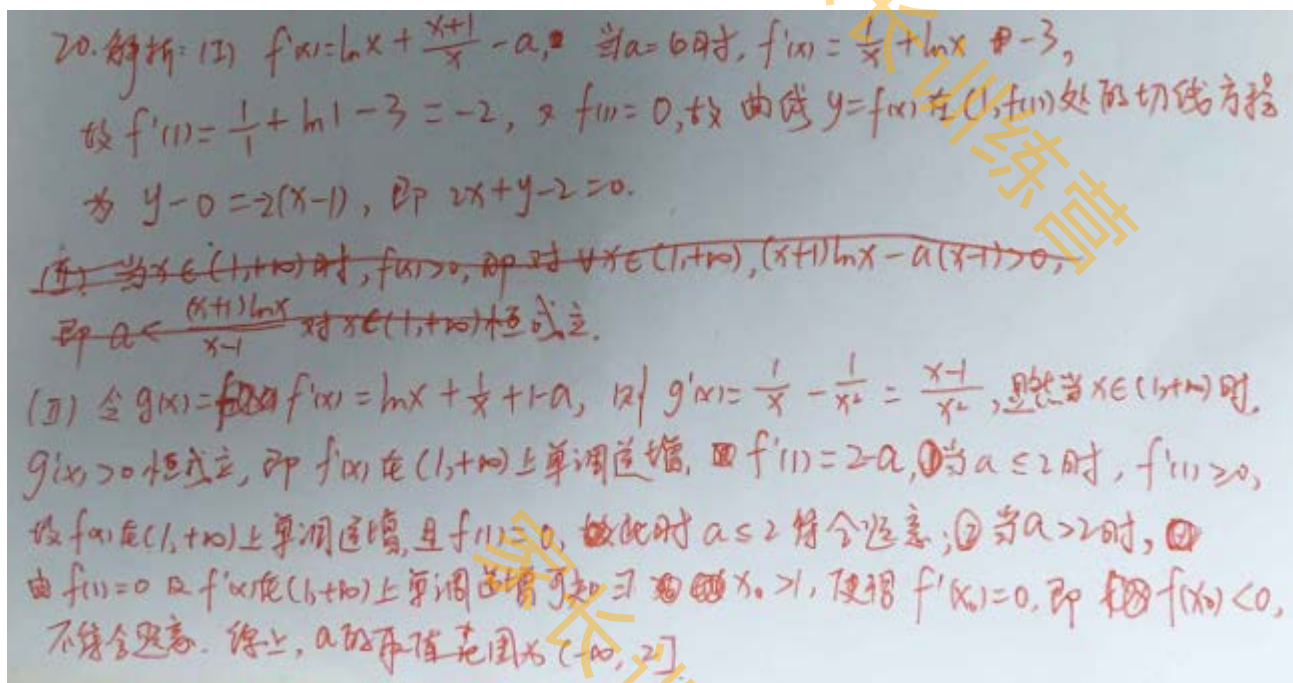 20.解析:(I) f'(x)=lnx+\frac{x+1}{x}-a, 当a=6时, f'(x)=\frac{1}{x}+lnx-3,
故f'(1)=\frac{1}{1}+ln1-3=-2, 又f(1)=0,故曲线y=f(x)在(1,f(1))处的切线方程
为 y-0=-2(x-1), 即 2x+y-2=0.
(II) 当x∈(1,+∞)时,f(x)>0,即对∀x∈(1,+∞),(x+1)lnx-a(x-1)>0,
即a<\frac{(x+1)lnx}{x-1}对x∈(1,+∞)恒成立.
(II) 令g(x)=f'(x)=lnx+\frac{1}{x}+1-a, 则g'(x)=\frac{1}{x}-\frac{1}{x²}=\frac{x-1}{x²},显然当x∈(1,+∞)时,
g'(x)>0恒成立,即f'(x)在(1,+∞)上单调递增, f'(1)=2-a,①当a≤2时, f'(1)≥0,
故f(x)在(1,+∞)上单调递增,且f(1)=0,故此时a≤2符合题意;②当a>2时,
由f(1)=0及f'(x)在(1,+∞)上单调递增可知∃x₀>1,使得f'(x₀)=0,即f(x₀)<0,
不符合题意.综上,a的取值范围为(-∞,2]
家长训练营
家长训